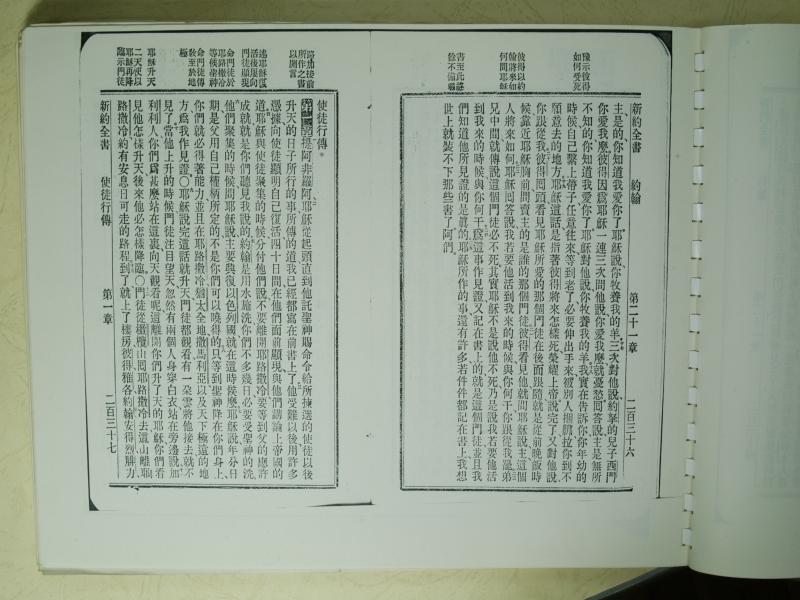 新約全書 約翰 第二十一章 二百三十六
豫示彼得
如何受死
彼得以約
翰將來如
何問耶穌
書至此終
餘不備載
主是的、你知道我愛你了、耶穌說、你牧養我的羊、三次對他說、約拏的兒子西門
你愛我麼、彼得因爲耶穌一連三次問他說、你愛我麼、就憂愁、回答說、主是無所
不知的、你知道我愛你了、耶穌對他說、你牧養我的羊、我實在告訴你、你年幼的
時候、自己繫上帶子、任意往來、等到老了、必要伸出手來、被別人捆綁拉你到不
願意去的地方、耶穌這話、是指著彼得將來怎樣死榮耀上帝說完了、又對他說
你跟從我、彼得回頭看見耶穌所愛的那個門徒在後面跟隨、就是從前晚飯時
候靠近耶穌胸前、問賣主的是誰的那個門徒、彼得看見他、就問耶穌說、主、這個
人將來如何、耶穌回答說、我若要他活到我來的時候、與你何干、你跟從我、這弟
兄中間就傳說、這個門徒必不死、其實耶穌不是說他不死、乃是說我若要他活
到我來的時候、與你何干、爲這事作見證、又記在書上的、就是這個門徒、並且我
們知道他所見證的是眞的、耶穌所作的事、還有許多、若件件都記在書上、我想
世上就裝不下那些書了、阿們
路加接前
所作之書
以開言
述耶穌復
活後屢向
門徒顯現
命門徒於
耶路撒冷
等候聖神
命門徒傳
教至於地
極
耶穌升天
二天使以
耶穌再降
臨示門徒
使徒行傳
第一章 提阿非羅阿、耶穌從起頭直到他託聖神賜命令給所揀選的使徒以後
升天的日子、所行的事、所傳的道、我已經都寫在前書上了、他受難以後、用許多
憑據、向使徒顯明自己復活、四十日間、在他們面前顯現、與他們講論上帝國的
道、耶穌與使徒聚集的時候、分付他們說、不要離開耶路撒冷、要等到父的應許
成就、就是你們聽見我說的、約翰是用水施洗、你們不多幾日、必要受聖神的洗、
他們聚集的時候、問耶穌說、主要與復以色列國、就在這時候麼、耶穌說、年分日
期、是父用自己權柄所定的、不是你們可以曉得的、只等到聖神降在你們身上、
你們就必得著能力、並且在耶路撒冷、猶太全地、撒馬利亞、以及天下極遠的地
方、爲我作見證、〇耶穌說完這話、就升天、門徒都觀看、有一朵雲將他接去就不
見了、當他上升的時候、門徒注目望天、忽然有兩個人身穿白衣站在旁邊說、加
利利人、你們爲甚麼站在這裏向天觀看呢、這離開你們升了天的耶穌、你們看
見他怎樣升天、後來他必怎樣降臨、〇門徒從橄欖山回耶路撒冷去、這山離耶
路撒冷約有安息日可走的路程、到了就上了樓房、彼得、雅各、約翰、安得烈、腓力
新約全書 使徒行傳 第一章 二百三十七